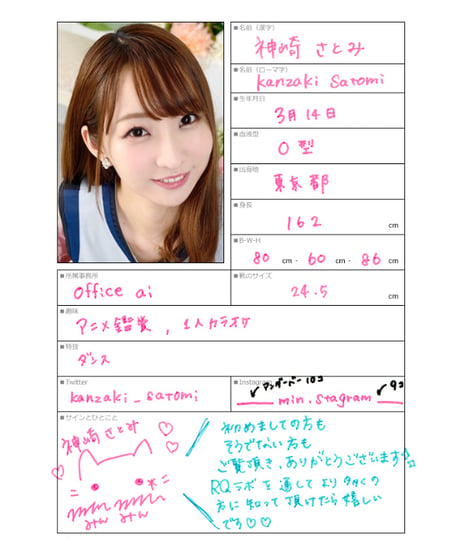 ■名前（漢字）
神崎 さとみ
■名前（ローマ字）
kanzaki satomi
■生年月日
3月14日
■血液型
O型
■出身地
東京都
■身長
162 cm
■B-W-H
80 cm - 60 cm - 86 cm
■所属事務所
office ai
■靴のサイズ
24.5 cm
■趣味
アニメ鑑賞, 1人カラオケ
■特技
ダンス
■Twitter
kanzaki_satomi
■Instagram
アンダーバー10コ
9コ
__min.stagram__
■サインとひとこと
神崎さとみ
みん みん
初めましての方も
そうでない方も
ご覧頂き、ありがとうございます
RQラボを通してより多くの
方に知って頂けたら嬉しい
です♡♡